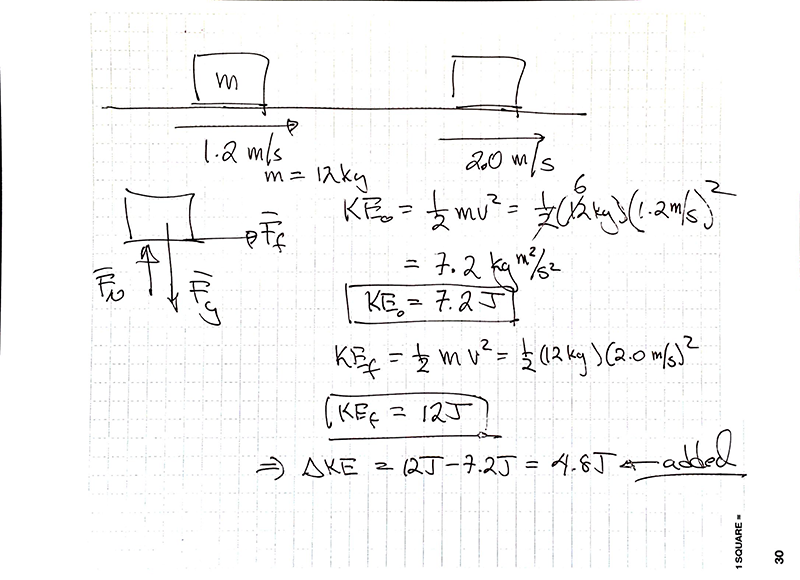 m
1.2 m/s
2.0 m/s
m = 12kg
F_f
F_N
F_g
KE₀ = ½ mv² = ½ (12kg)(1.2 m/s)²
6
= 7.2 kg m²/s²
KE₀ = 7.2 J
KE_f = ½ m v² = ½ (12kg)(2.0 m/s)²
KE_f = 12J
⇒ ΔKE = 12J - 7.2J = 4.8J ← added
1 SQUARE =
30